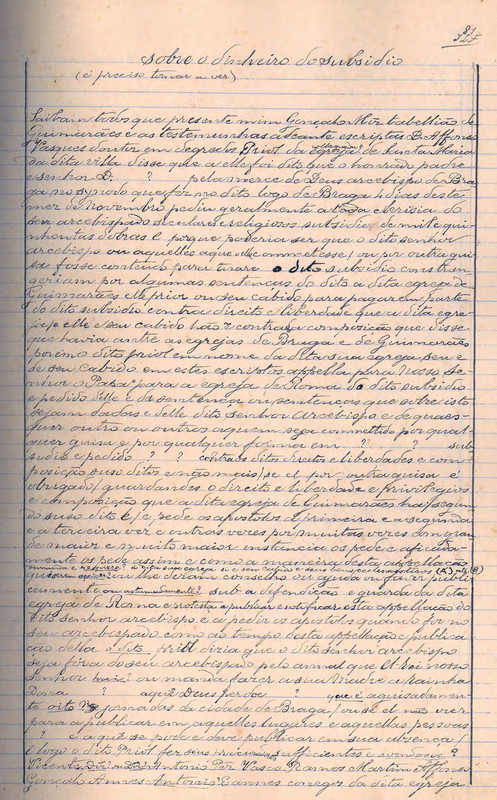 sobre o dinheiro do subsidio
(é preciso tornar a ver)
Saibam todos que presente mim Gonçalo Miz tabellião de
Guimarães e as testemunhas adeante escriptas D. Affonso
Vasques doutor em degredos Priol da egreja de Santa Maria
da dita villa disse que a elle foi dito que o honrado padre
e senhor D. ? pela mercê de Deus arcebispo de Bra
ga no synodo que fez no dito logo de Braga dias deste
mez de novembro pediu geralmente a toda clerisia do
seu arcebispado seculares e religiosos subsidio de mil e qui
nhentas dobras e porque poderia ser que o dito senhor
arcebispo ou aquelles a que commettesse ou por outra gui
sa fosse contendo para tirar o dito subsidio constran
geriam por algumas sentenças do dito a dita egreja de
Guimarães elle prior ou seu cabido para pagarem parte
do dito subsidio contra direito e liberdade que a dita egre
ja e elle e seu cabido hão e contra a composição que disse
que havia antre as egrejas de Braga e de Guimarães
porém o dito priol em nome da dita sua egreja seu e
de seu cabido em estes escriptos appella para Nosso Se
nhor o Papa para a egreja de Roma do dito subsidio
e pedido delle e da sentença ou sentenças que sobre isto
sejam dadas e delle dito senhor Arcebispo e de quaes
quer outro ou outros a quem seja commettido por qual
quer guisa e por qualquer forma em ? ? sub
sidio e pedido ? ? contra os ditos direitos e liberdades e com
posição suso ditos e não mais se el por outra guisa é
obrigado guardando o direito e liberdade e privilegios
e composição que a dita egreja de Guimarães ha segun
do suso dito é e pede os apostolos a primeira e a segunda
e a terceira vez e outras vezes por muitas vezes com gran
de maior e muito maior instancia os pede e aficada
mente os pede assim e como a maneira desta appellação
quizerem ou lhe derem conselho ou ajuda ou favor publi
camente ou sub a defendição e guarda da dita
egreja de Roma e protesta a publicar e notificar esta appellação ao
dito senhor arcebispo e a pedir os apostolos quando for no
seu arcebispado como ao tempo desta appellação e publica
ção della o dito priol dizia que o dito senhor arcebispo
seja fóra do seu arcebispado pelo annal que El-rei nosso
Senhor ou manda fazer a sua Madre a Rainha
Dona ? a que Deus perdoe ? que é aquisadamen
te oito jornadas da cidade de Braga ou se el não vier
para a publicar em aquelles lugares e aquellas pessoas
? e a que se pode e deve publicar em sua absencia
E logo o dito Priol fez seus procuradores sufficientes e avondosos ?
Vicente Antonio Pero Vasco Eannes Martim Affonso
Gonçalo Annes Eannes conegos da dita egreja